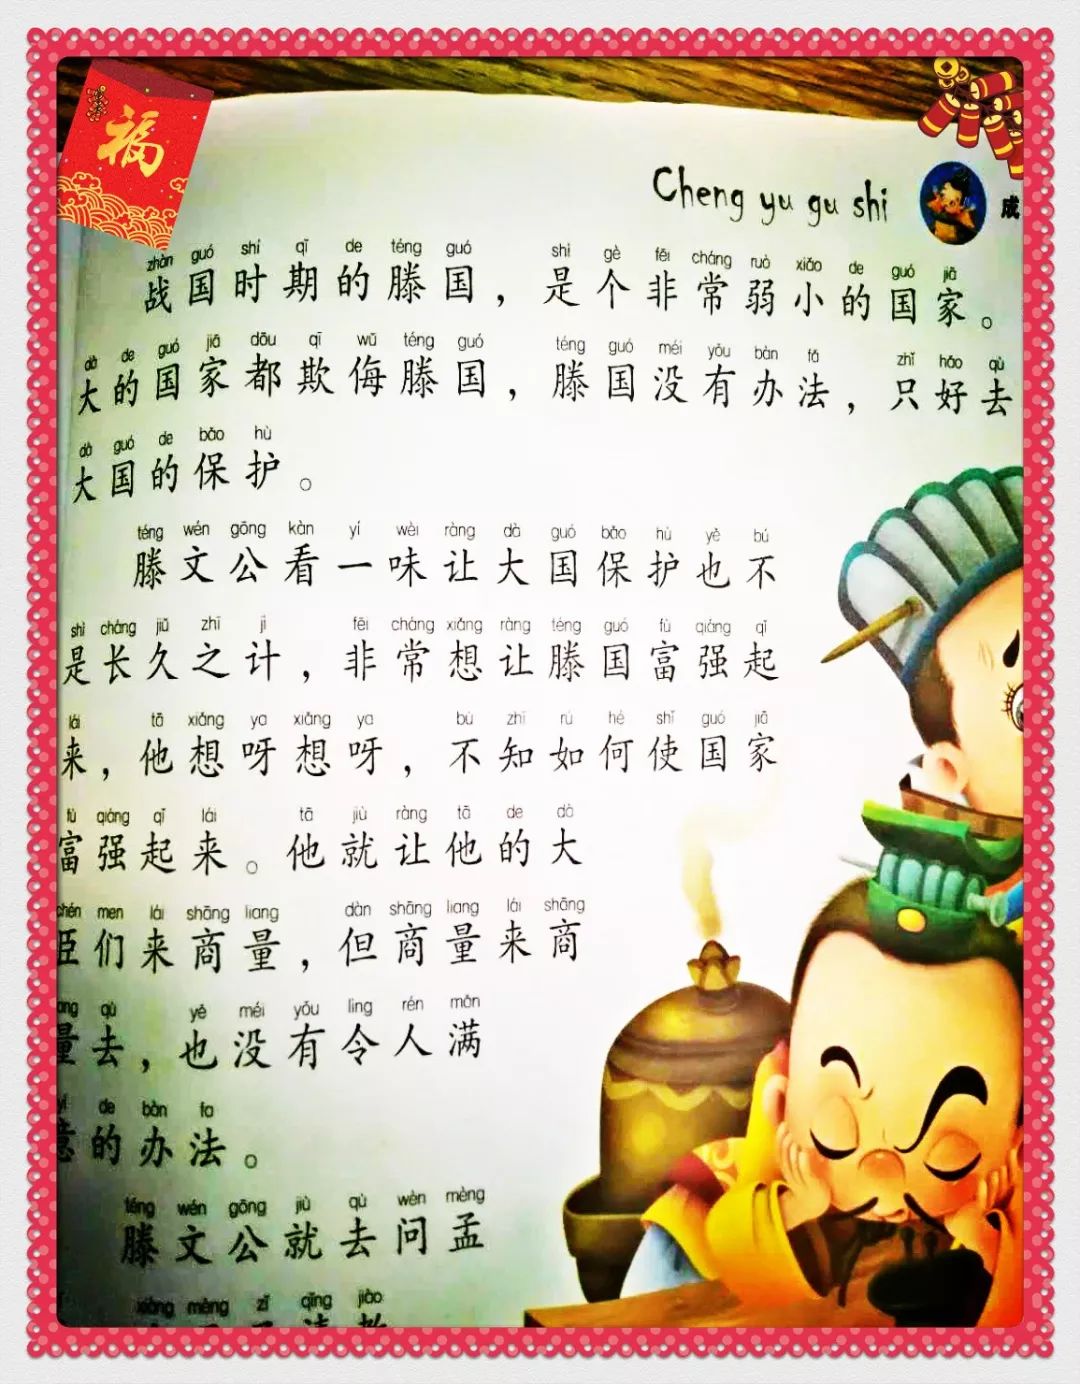 福
Cheng yu gu shi 成
zhàn guó shí qī de téng guó shì gè fēi cháng ruò xiǎo de guó jiā
战国时期的滕国，是个非常弱小的国家。
dà de guó jiā dōu qī wǔ téng guó téng guó méi yǒu bàn fǎ zhǐ hǎo qù
大的国家都欺侮滕国，滕国没有办法，只好去
dà guó de bǎo hù
大国的保护。
téng wén gōng kàn yí wèi ràng dà guó bǎo hù yě bú
滕文公看一味让大国保护也不
shì cháng jiǔ zhī jì fēi cháng xiǎng ràng téng guó fù qiáng qǐ
是长久之计，非常想让滕国富强起
lái tā xiǎng ya xiǎng ya bù zhī rú hé shǐ guó jiā
来，他想呀想呀，不知如何使国家
fù qiáng qǐ lái tā jiù ràng tā de dà
富强起来。他就让他的大
chén men lái shāng liang dàn shāng liang lái shāng
臣们来商量，但商量来商
qù yě méi yǒu lìng rén mǎn
量去，也没有令人满
yì de bàn fa
意的办法。
téng wén gōng jiù qù wèn mèng
滕文公就去问孟
xiàng mèng zǐ qǐng jiào